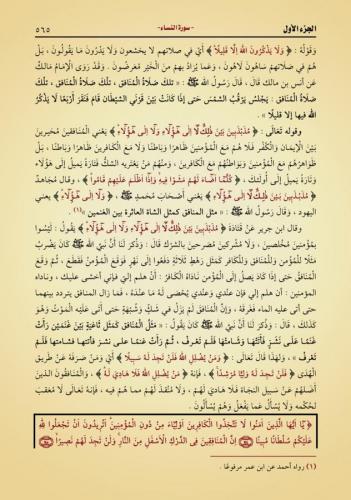 الجزء الأول
- سورة النساء -
٥٦٥
وَقَوْلُهُ : ﴿ وَلَا يَذْكُرُونَ اللَّهَ إِلَّا قَلِيلًا ﴾ أَيْ فِي صلاتهم لا يخشعون وَلَا يَدْرُونَ مَا يَقُولُونَ ، بَلْ
هُمْ فِي صَلَاتِهِمْ سَاهُونَ لَاهُونَ ، وَعَمَّا يُرَادُ بِهِمْ مِنَ الْخَيْرِ مُعْرِضُونَ . وَقَدْ رَوَى الْإِمَامُ مَالِكٌ
عَنْ أَنَسِ بْنِ مَالِكٍ قَالَ ، قَالَ رَسُولُ اللَّهِ ﷺ : « تلك صَلَاةُ الْمُنَافِقِ ، تِلْكَ صَلَاةُ الْمُنَافِقِ ، تِلْكَ
صَلَاةُ الْمُنَافِقِ : يَجْلِسُ يَرْقُبُ الشَّمْسَ حتى إِذَا كَانَتْ بَيْنَ قَرْنَيِ الشَّيْطَانِ قَامَ فَنَقَرَ أَرْبَعًا لَا يَذْكُرُ
اللَّهَ فِيهَا إِلَّا قَلِيلًا » .
وقوله تَعَالَى : ﴿ مُّذَبْذَبِينَ بَيْنَ ذَٰلِكَ لَا إِلَىٰ هَٰؤُلَاءِ وَلَا إِلَىٰ هَٰؤُلَاءِ ﴾ يعني المنافقين مُحَيَّرِينَ
بَيْنَ الْإِيمَانِ وَالْكُفْرِ فَلَا هُمْ مَعَ الْمُؤْمِنِينَ ظَاهِرًا وَبَاطِنًا ، وَلَا مَعَ الْكَافِرِينَ ظَاهِرًا وَبَاطِنًا ، بَلْ
ظَوَاهِرُهُمْ مَعَ الْمُؤْمِنِينَ وَبَوَاطِنُهُمْ مَعَ الْكَافِرِينَ ، وَمِنْهُمْ مَنْ يَعْتَرِيهِ الشَّكُّ فَتَارَةً يَمِيلُ إِلَى هَؤُلَاءِ
وَتَارَةً يَمِيلُ إِلَى أُولَئِكَ ، ﴿ كُلَّمَا أَضَاءَ لَهُم مَّشَوْا فِيهِ وَإِذَا أَظْلَمَ عَلَيْهِمْ قَامُوا ﴾ ، وَقَالَ مُجَاهِدٌ
﴿ مُّذَبْذَبِينَ بَيْنَ ذَٰلِكَ لَا إِلَىٰ هَٰؤُلَاءِ ﴾ يَعْنِي أَصْحَابَ مُحَمَّدٍ ﷺ ، ﴿ وَلَا إِلَىٰ هَٰؤُلَاءِ ﴾ يَعْنِي
اليهود ، وَقَالَ رَسُولُ اللَّهِ ﷺ : « مثل المنافق كمثل الشاة العائرة بين الغنمين »(١) .
وقال ابن جرير عَنْ قَتَادَةَ ﴿ مُّذَبْذَبِينَ بَيْنَ ذَٰلِكَ لَا إِلَىٰ هَٰؤُلَاءِ وَلَا إِلَىٰ هَٰؤُلَاءِ ﴾ يَقُولُ : لَيْسُوا
بِمُؤْمِنِينَ مُخْلِصِينَ ، وَلَا مُشْرِكِينَ مُصَرِّحِينَ بِالشِّرْكِ قَالَ : وَذُكِرَ لَنَا أَنَّ نبي الله ﷺ كَانَ يَضْرِبُ
مَثَلًا لِلْمُؤْمِنِ وَلِلْمُنَافِقِ وَلِلْكَافِرِ كَمَثَلِ رَهْطٍ ثَلَاثَةٍ دَفَعُوا إِلَى نَهَرٍ فَوَقَعَ الْمُؤْمِنُ فَقَطَعَ ، ثُمَّ وَقَعَ
الْمُنَافِقُ حتى إِذَا كَادَ يَصِلُ إِلَى الْمُؤْمِنِ نَادَاهُ الْكَافِرُ : أَنْ هَلُمَّ إِلَيَّ فَإِنِّي أَخْشَى عَلَيْكَ ، وناداه
المؤمنين : أَنْ هلم إلي فإن عندي وَعِنْدِي يُحْصَى لَهُ مَا عِنْدَهُ ، فما زال المنافق يتردد بينهما
حتى أتى عليه الماء فَغَرَّقَهُ ، وَإِنَّ الْمُنَافِقَ لَمْ يَزَلْ فِي شَكٍّ وَشُبْهَةٍ حتى أَتَى عَلَيْهِ الْمَوْتُ وَهُوَ
كَذَلِكَ ، قَالَ : وَذُكِرَ لَنَا أَنَّ نَبِيَّ اللَّهِ ﷺ كَانَ يَقُولُ : « مَثَلُ الْمُنَافِقِ كَمَثَلِ ثَاغِيَةٍ بَيْنَ غَنَمَيْنِ رَأَتْ
غَنَمًا عَلَى نَشَزٍ فَأَتَتْهَا وَشَامَّتْهَا فَلَمْ تَعْرِفْ ، ثُمَّ رَأَتْ غنما على نشز فأتتها فشامتها فَلَمْ
تَعْرِفْ » ، وَلِهَذَا قَالَ تَعَالَى : ﴿ وَمَن يُضْلِلِ اللَّهُ فَلَن تَجِدَ لَهُ سَبِيلًا ﴾ أَيْ وَمَنْ صَرَفَهُ عَنْ طَرِيقِ
الْهُدَى ﴿ فَلَن تَجِدَ لَهُ وَلِيًّا مُّرْشِدًا ﴾ ، فَإِنَّهُ ﴿ مَن يُضْلِلِ اللَّهُ فَلَا هَادِيَ لَهُ ﴾ ، وَالْمُنَافِقُونَ الَّذِينَ
أَضَلَّهُمْ عَنْ سَبِيلِ النَّجَاةِ فَلَا هَادِيَ لَهُمْ ، وَلَا مُنْقِذَ لَهُمْ مما هم فِيهِ ، فَإِنَّهُ تَعَالَى لَا مُعَقِّبَ
لحكمه وَلَا يُسْأَلُ عَمَّا يَفْعَلُ وَهُمْ يُسْأَلُونَ .
﴿ يَا أَيُّهَا الَّذِينَ آمَنُوا لَا تَتَّخِذُوا الْكَافِرِينَ أَوْلِيَاءَ مِن دُونِ الْمُؤْمِنِينَ أَتُرِيدُونَ أَن تَجْعَلُوا لِلَّهِ
عَلَيْكُمْ سُلْطَانًا مُّبِينًا ﴿١٤٤﴾ إِنَّ الْمُنَافِقِينَ فِي الدَّرْكِ الْأَسْفَلِ مِنَ النَّارِ وَلَن تَجِدَ لَهُمْ نَصِيرًا ﴿١٤٥﴾
(١) رواه أحمد عن ابن عمر مرفوعًا .